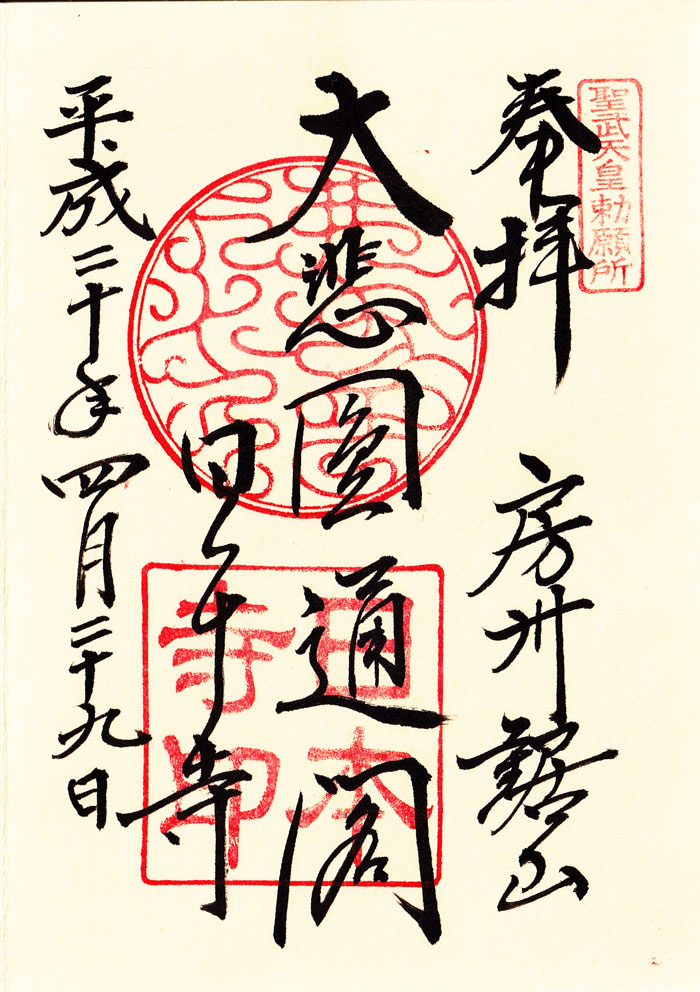 聖武天皇勅願所
奉拝
房州鋸山
大悲圓通閣
日本寺
平成二十年四月二十九日
日本
寺印